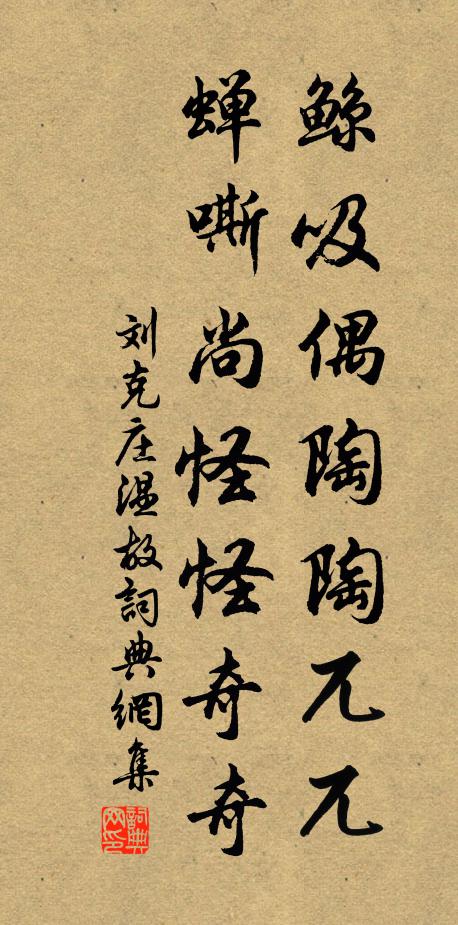 鲸吸偶陶陶兀兀
蝉嘶尚怪怪奇奇
刘克庄温故詞典網集
詞典
网印